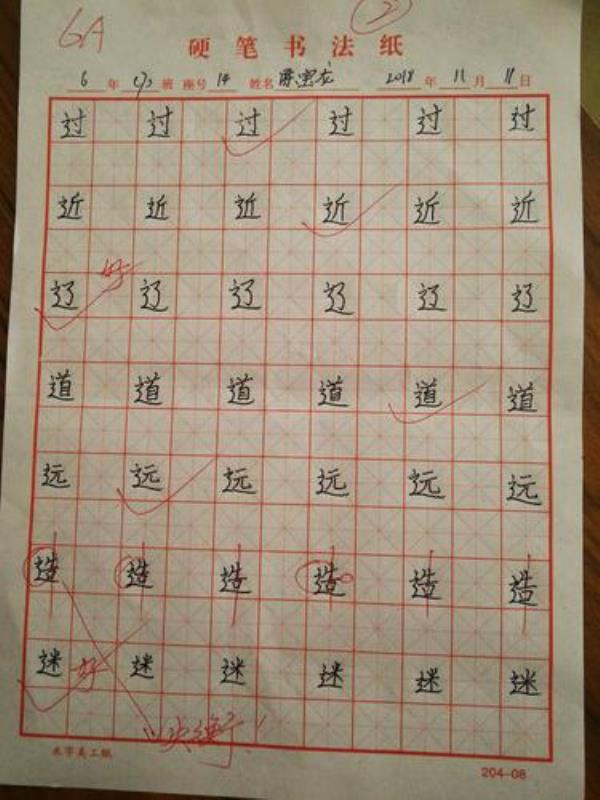 6A 2
硬笔书法纸
6年(1)班 座号14 姓名 龙 2018年11月11日
过 过 过 过 过 过
近 近 近 近 近 近
好
辽 辽 辽 辽 辽 辽
道 道 道 道 道 道
远 远 远 远 远 远
造 造 造 造 造 造
迷 迷 迷 迷 迷 迷
好
204-08